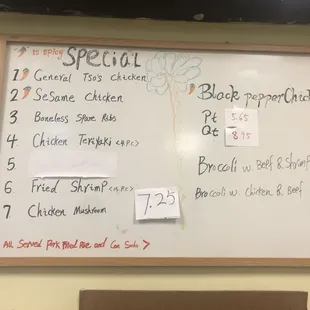 is spicy Special
1 General Tso's chicken
2 SeSame chicken
3 Boneless Spare Ribs
4 Chicken Teriyaki (4 PC)
5
6 Fried Shrimp (4 PC)
7 Chicken Mushroom
7.25
All Served Pork Fried Rice and Can Soda >
Black pepper Chic
Pt 5.65
Qt 8.95
Broccoli w. Beef & Shrimp
Broccoli w. Chicken & Beef